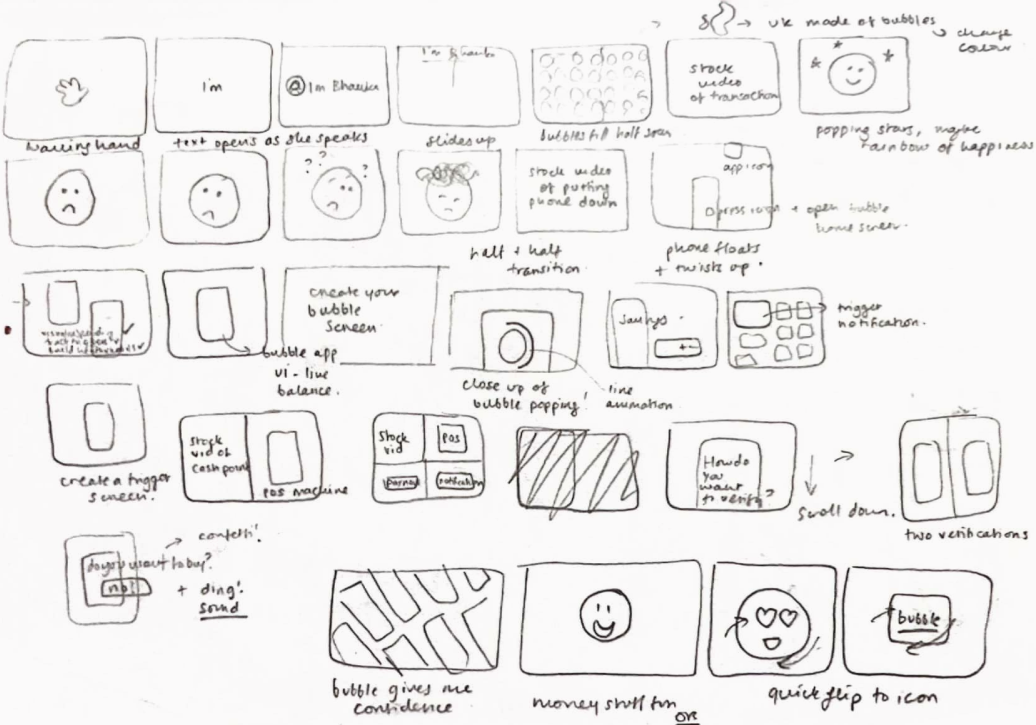 → uk made of bubbles
↳ change
colour
I'm
I'm Bhavika
I'm Bhavika
stock
video
of transaction
waving hand
text opens as she speaks
slides up
bubbles fill half screen
popping stars, maybe
rainbow of happiness
? ? ?
?
stock video
of putting
phone down
app icon
press icon + open bubble
home screen.
half + half
transition.
phone floats
+ twists up.
create your
bubble
screen
Savings.
+-
trigger
notification.
bubble app
UI - live
balance.
close up of
bubble popping!
line
animation.
create a trigger
screen.
stock
vid of
cashpoint
POS machine
stock
vid
POS
notification
How do
you
want
to verify?
scroll down.
two verifications
→ confetti!
do you want to buy?
no!
+ ding!
sound
bubble
bubble gives me
confidence
money stuff fun
OR
quick flip to icon